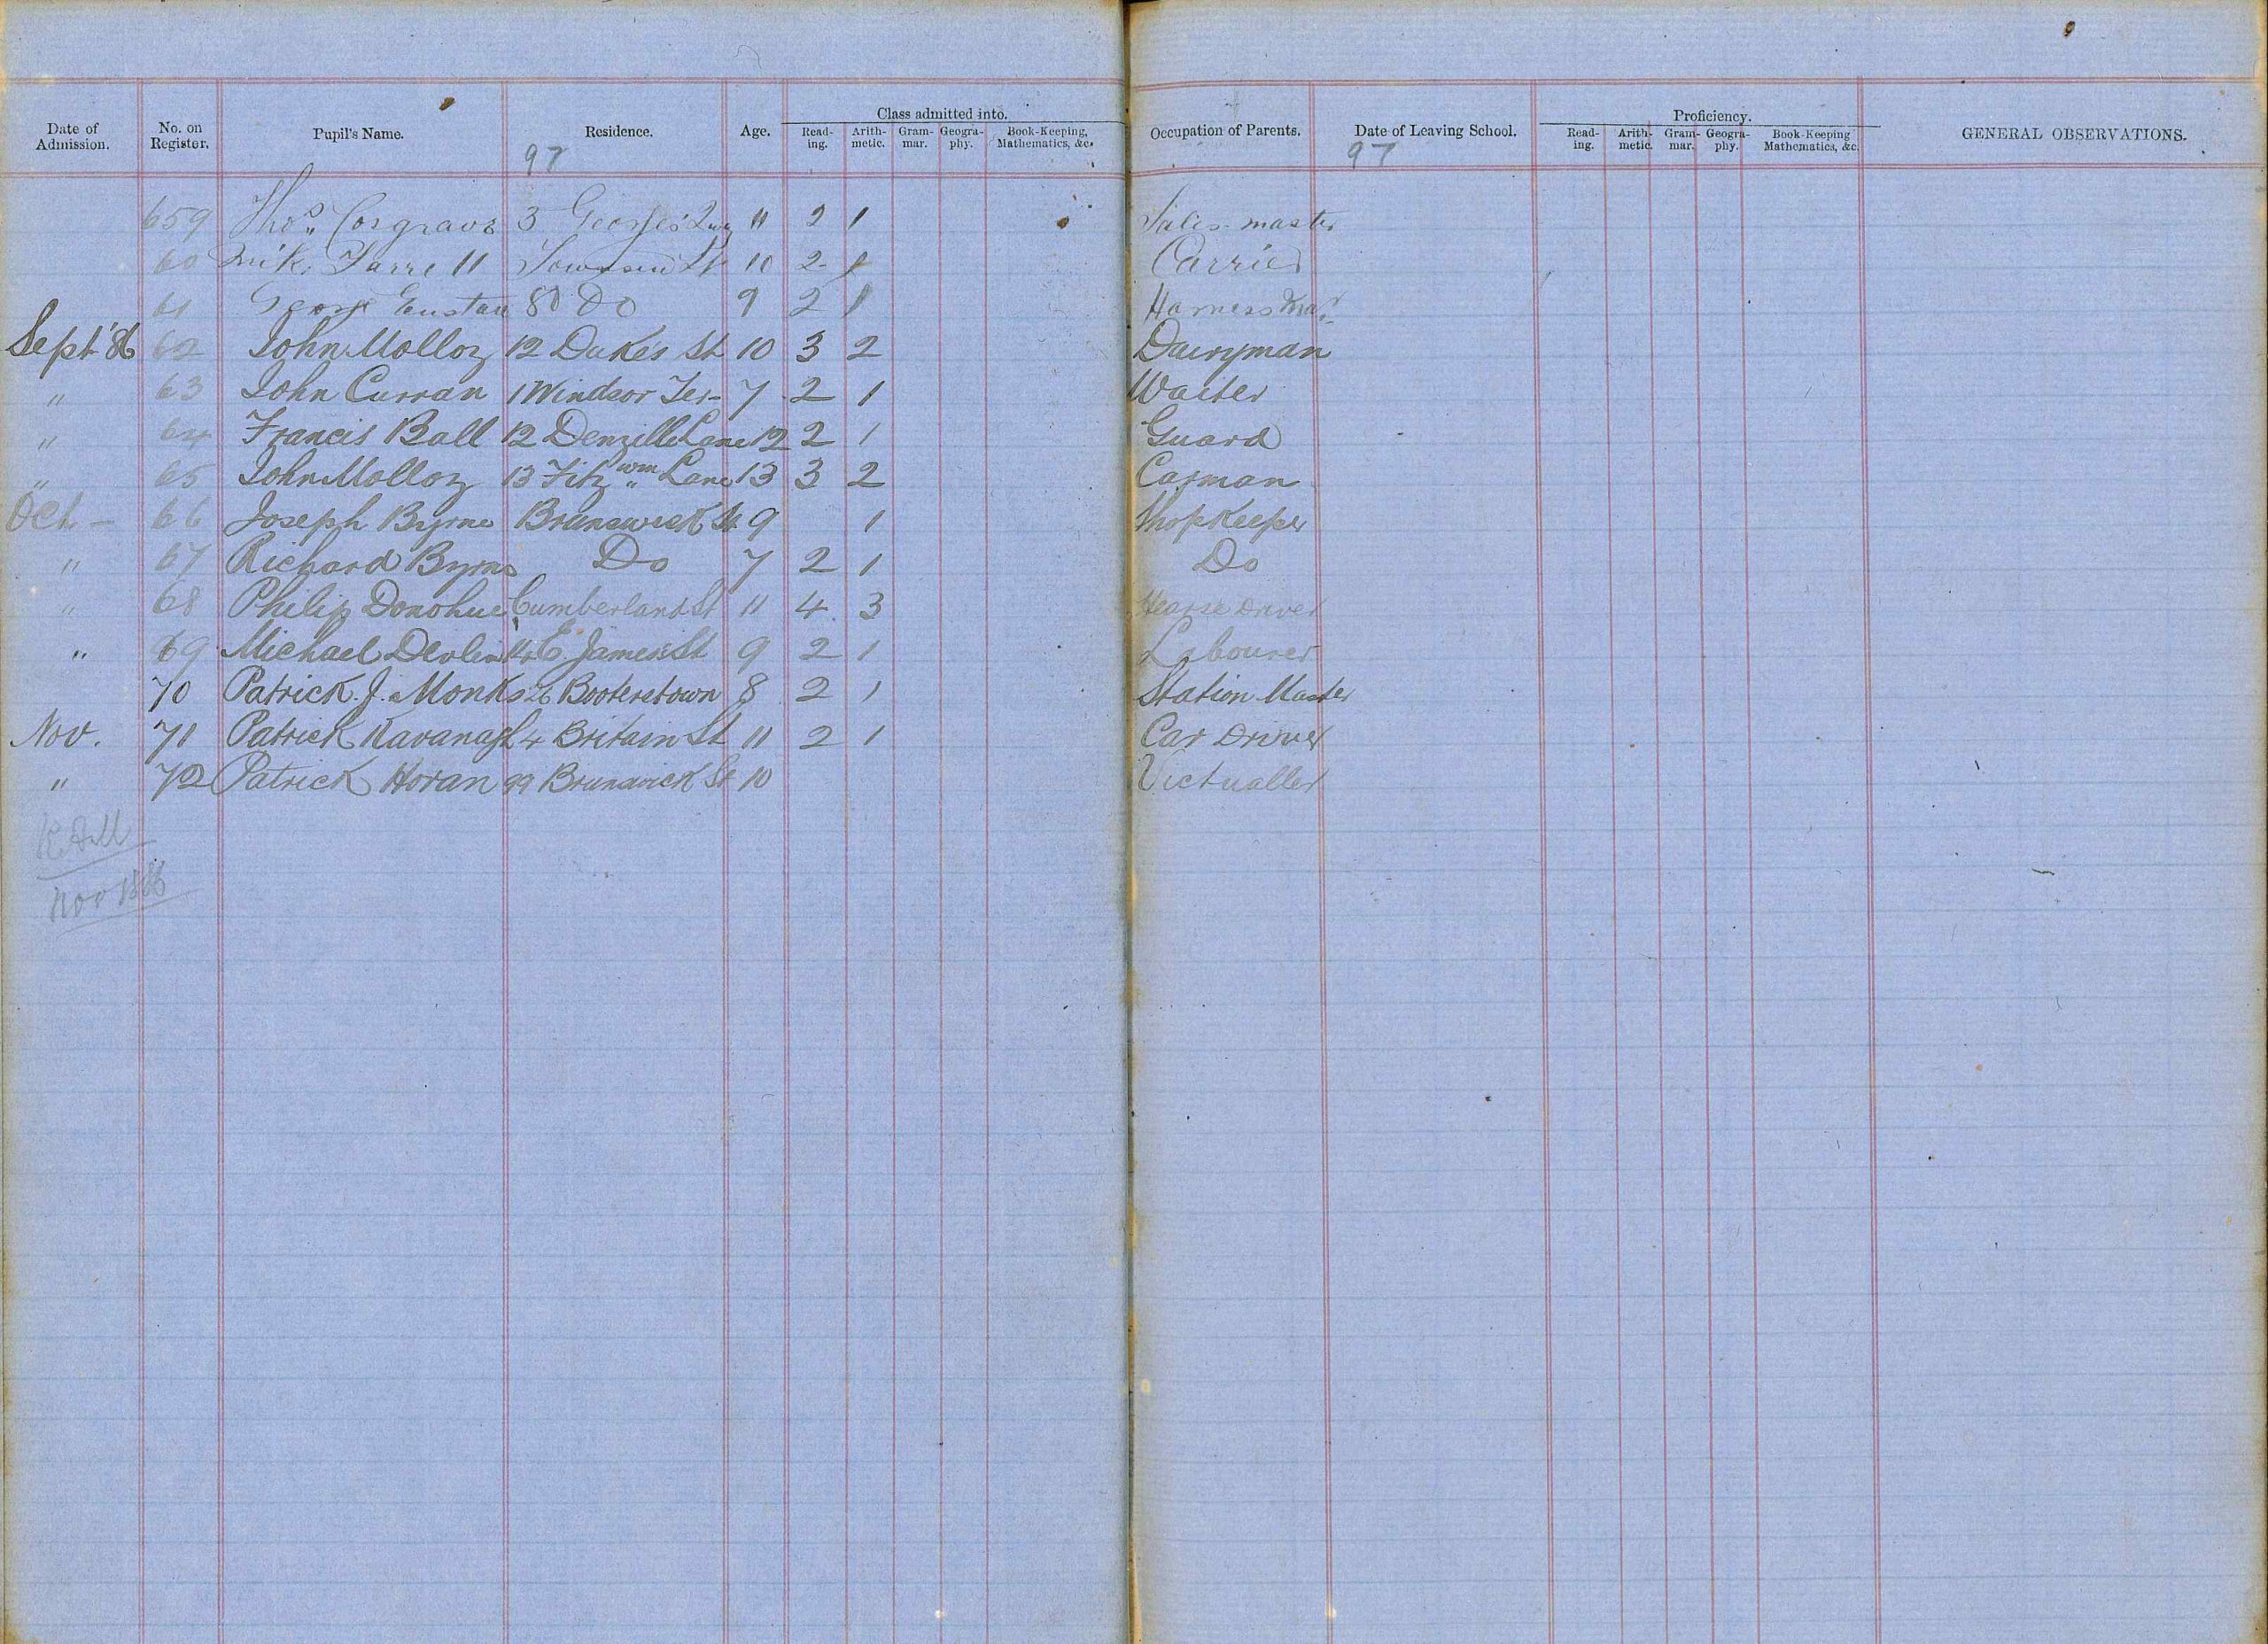 Date of Admission. No. on Register. Pupil's Name. Residence. Age. Class admitted into. Read-ing. Arith-metic. Gram-mar. Geogra-phy. Book-Keeping, Mathematics, &c. Occupation of Parents. Date of Leaving School. Proficiency. Read-ing. Arith-metic. Gram-mar. Geogra-phy. Book-Keeping Mathematics, &c. GENERAL OBSERVATIONS.
97 97
659 Thos. Cosgrave 3 George's Quay 11 2 1 Sales-master
60 Farrell Townsend St 10 2 1 Carrier
61 George Eustace 80 Do 9 2 1 Harness Mar
Sept '86 62 John Molloy 12 Duke's St 10 3 2 Dairyman
" 63 John Curran 1 Windsor Ter- 7 2 1 Waiter
" 64 Francis Ball 12 Denzille Lane 12 2 1 Guard
" 65 John Molloy 13 Fitzwm Lane 13 3 2 Carman
Oct - 66 Joseph Byrne Brunswick St 9 1 Shopkeeper
" 67 Richard Byrne Do 7 2 1 Do
" 68 Philip Donohue Cumberland St 11 4 3 Hearse Driver
" 69 Michael Devlin E. James's St 9 2 1 Labourer
70 Patrick J. Monks Booterstown 8 2 1 Station Master
Nov. 71 Patrick Kavanagh 4 Britain St 11 2 1 Car Driver
" 72 Patrick Horan 99 Brunswick St 10 Victualler
Nov 1886